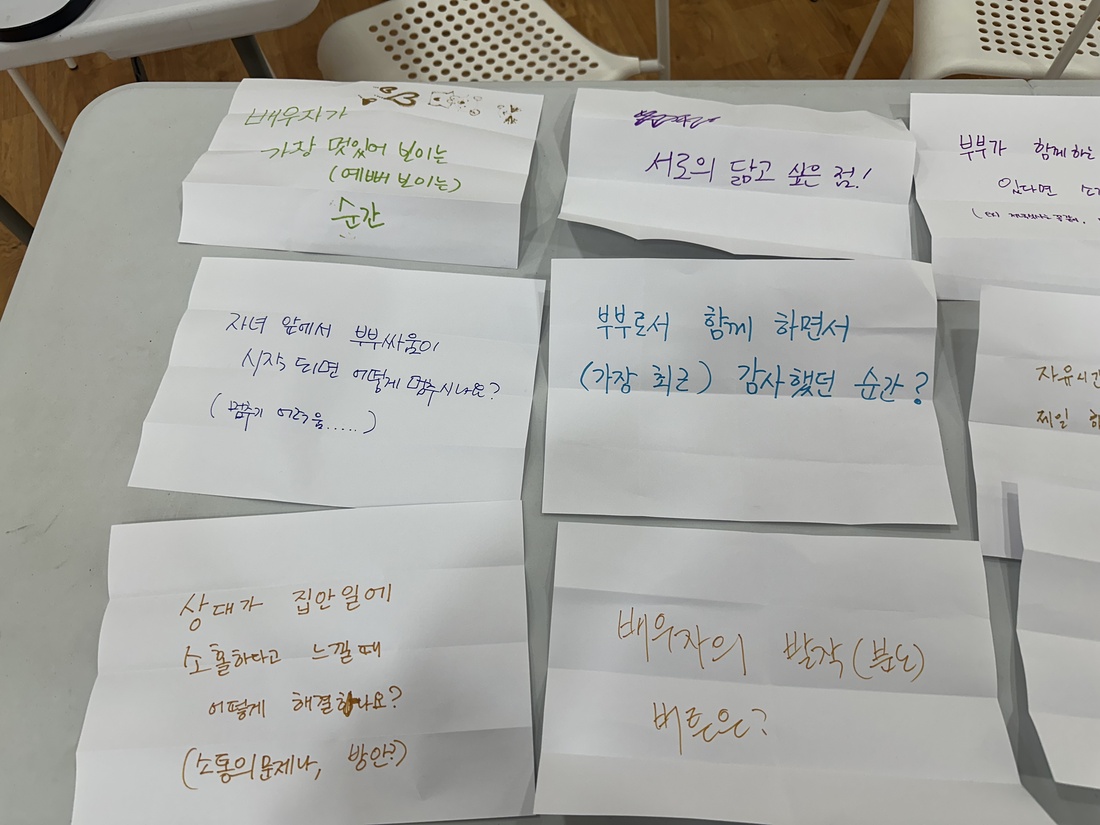 배우자가
가장 멋있어 보이는
(예뻐 보이는)
순간
서로의 닮고 싶은 점!
부부가 함께하는
있다면
자녀 앞에서 부부싸움이
시작 되면 어떻게 멈추시나요?
(멈추기 어려움.....)
부부로서 함께 하면서
(가장 최근) 감사했던 순간?
자유시간
제일
상대가 집안일에
소홀하다고 느낄 때
어떻게 해결하나요?
(소통의 문제나, 방안?)
배우자의 발작(분노)
버튼은?